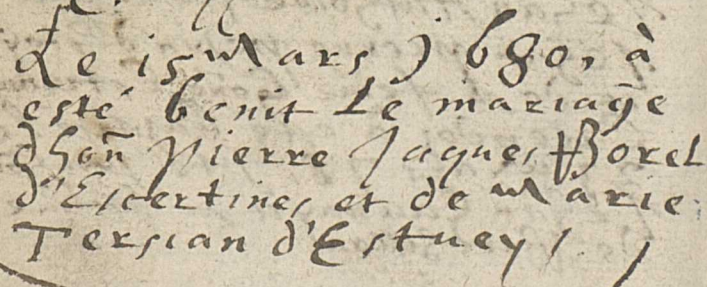 Le 15 Mars 1680, à
esté benit Le mariage
d'hon̄ Pierre Jaques Borel
d'Escertines et de Marie
Tersian d'Estuey,